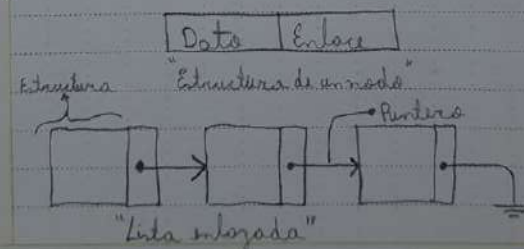 Dato Enlace
"Estructura de un nodo"
Estructura
Puntero
"Lista enlazada"